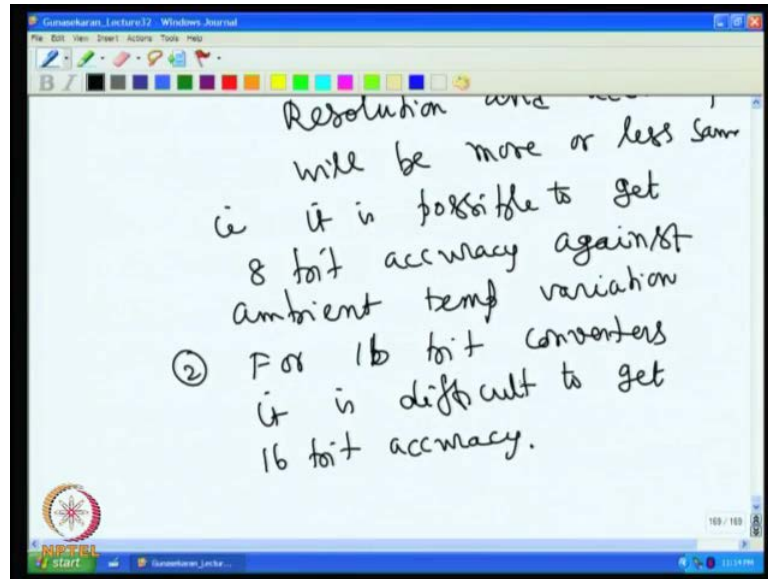 Gunasekaran_Lecture32 - Windows Journal
File Edit View Insert Actions Tools Help
B I
Resolution and
will be more or less same
ie it is possible to get
8 bit accuracy against
ambient temp variation
② For 16 bit converters
it is difficult to get
16 bit accuracy.
169 / 169
NPTEL
start Gunasekaran_Lectur... 11:14 PM